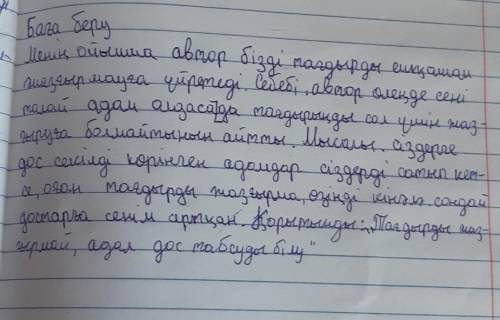 Баға беру
Менің ойымша автор бізді тағдырды ешқашан
жазғырмауға үйретеді. Себебі, автор өлеңде сені
талай адам алдаса да тағдырыңды сол үшін жаз-
ғыруға болмайтынын айтты. Мысалы. сіздерге
дос секілді көрінген адамдар сіздерді сатып кет-
се, оған тағдырды жазғырма, өзіңді кінәлә сондай
достарға сенім артқан. Қорытынды: "Тағдырды жаз-
ғырмай, адал дос табсуды білу"